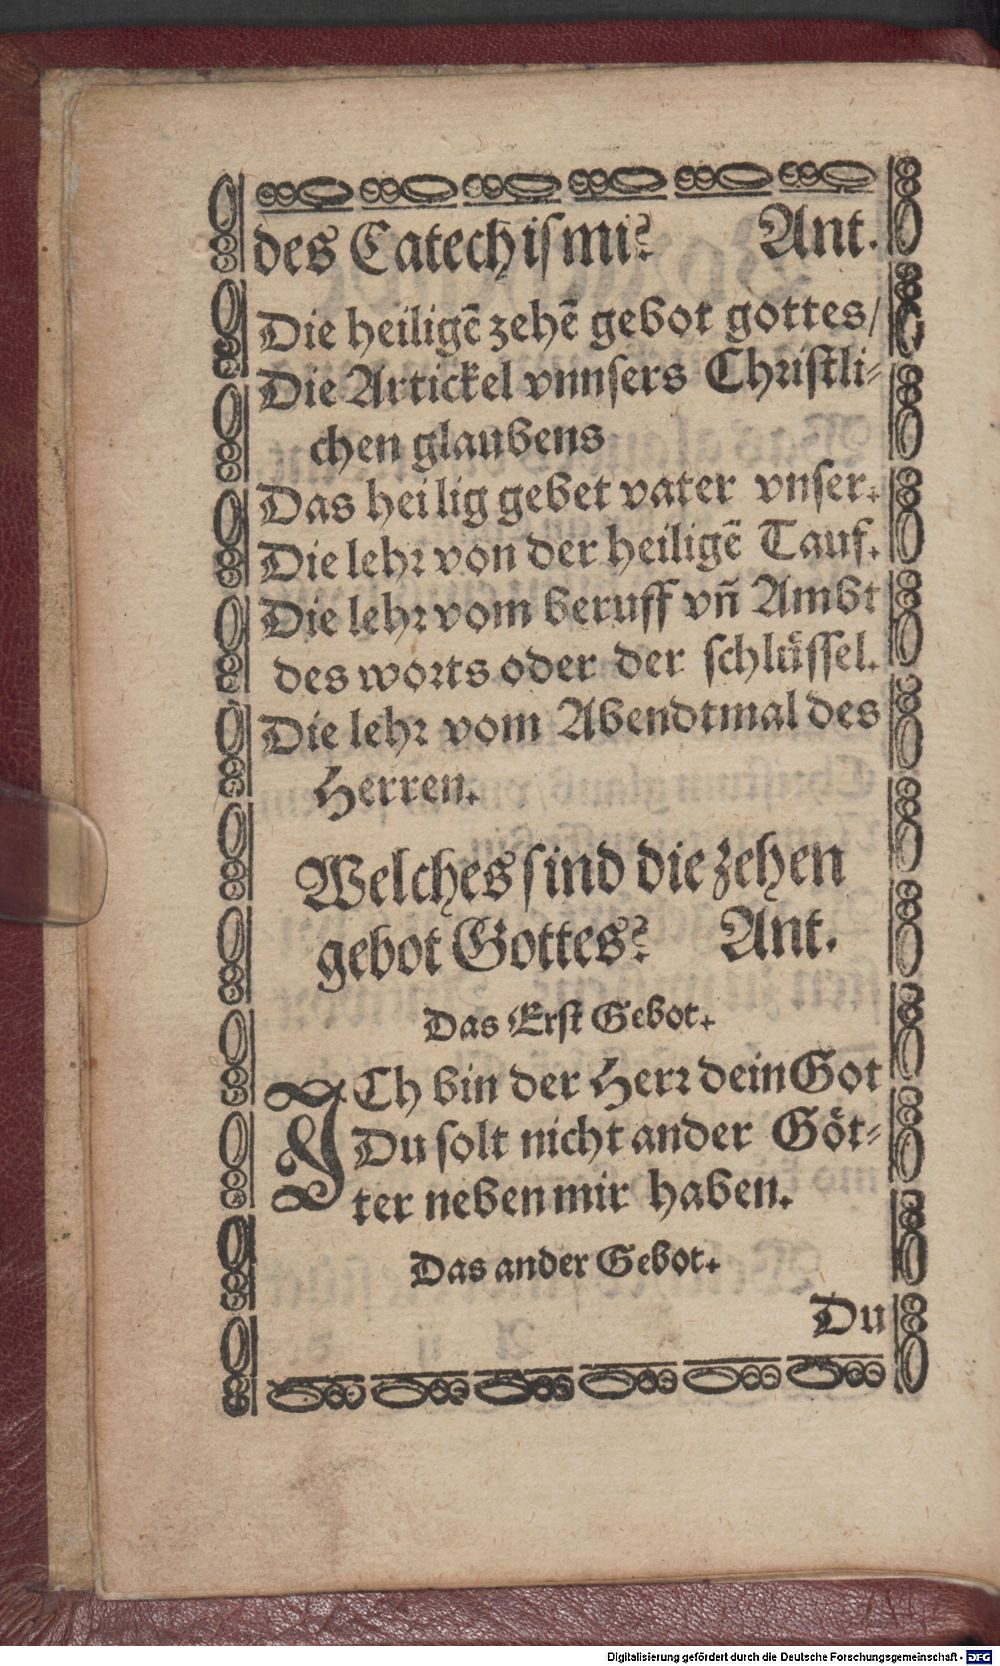 des Catechismi? Ant.
Die heiligē zehē gebot gottes/
Die Artickel vnnsers Christli⸗
chen glaubens
Das heilig gebet vater vnser.
Die lehr von der heiligē Tauf.
Die lehr vom beruff vñ Ambt
des worts oder der schlüssel.
Die lehr vom Abendtmal des
Herren.
Welches sind die zehen
gebot Gottes? Ant.
Das Erst Gebot.
ICh bin der Herr dein Got
Du solt nicht ander Göt⸗
ter neben mir haben.
Das ander Gebot.
Du
Digitalisierung gefördert durch die Deutsche Forschungsgemeinschaft - DFG